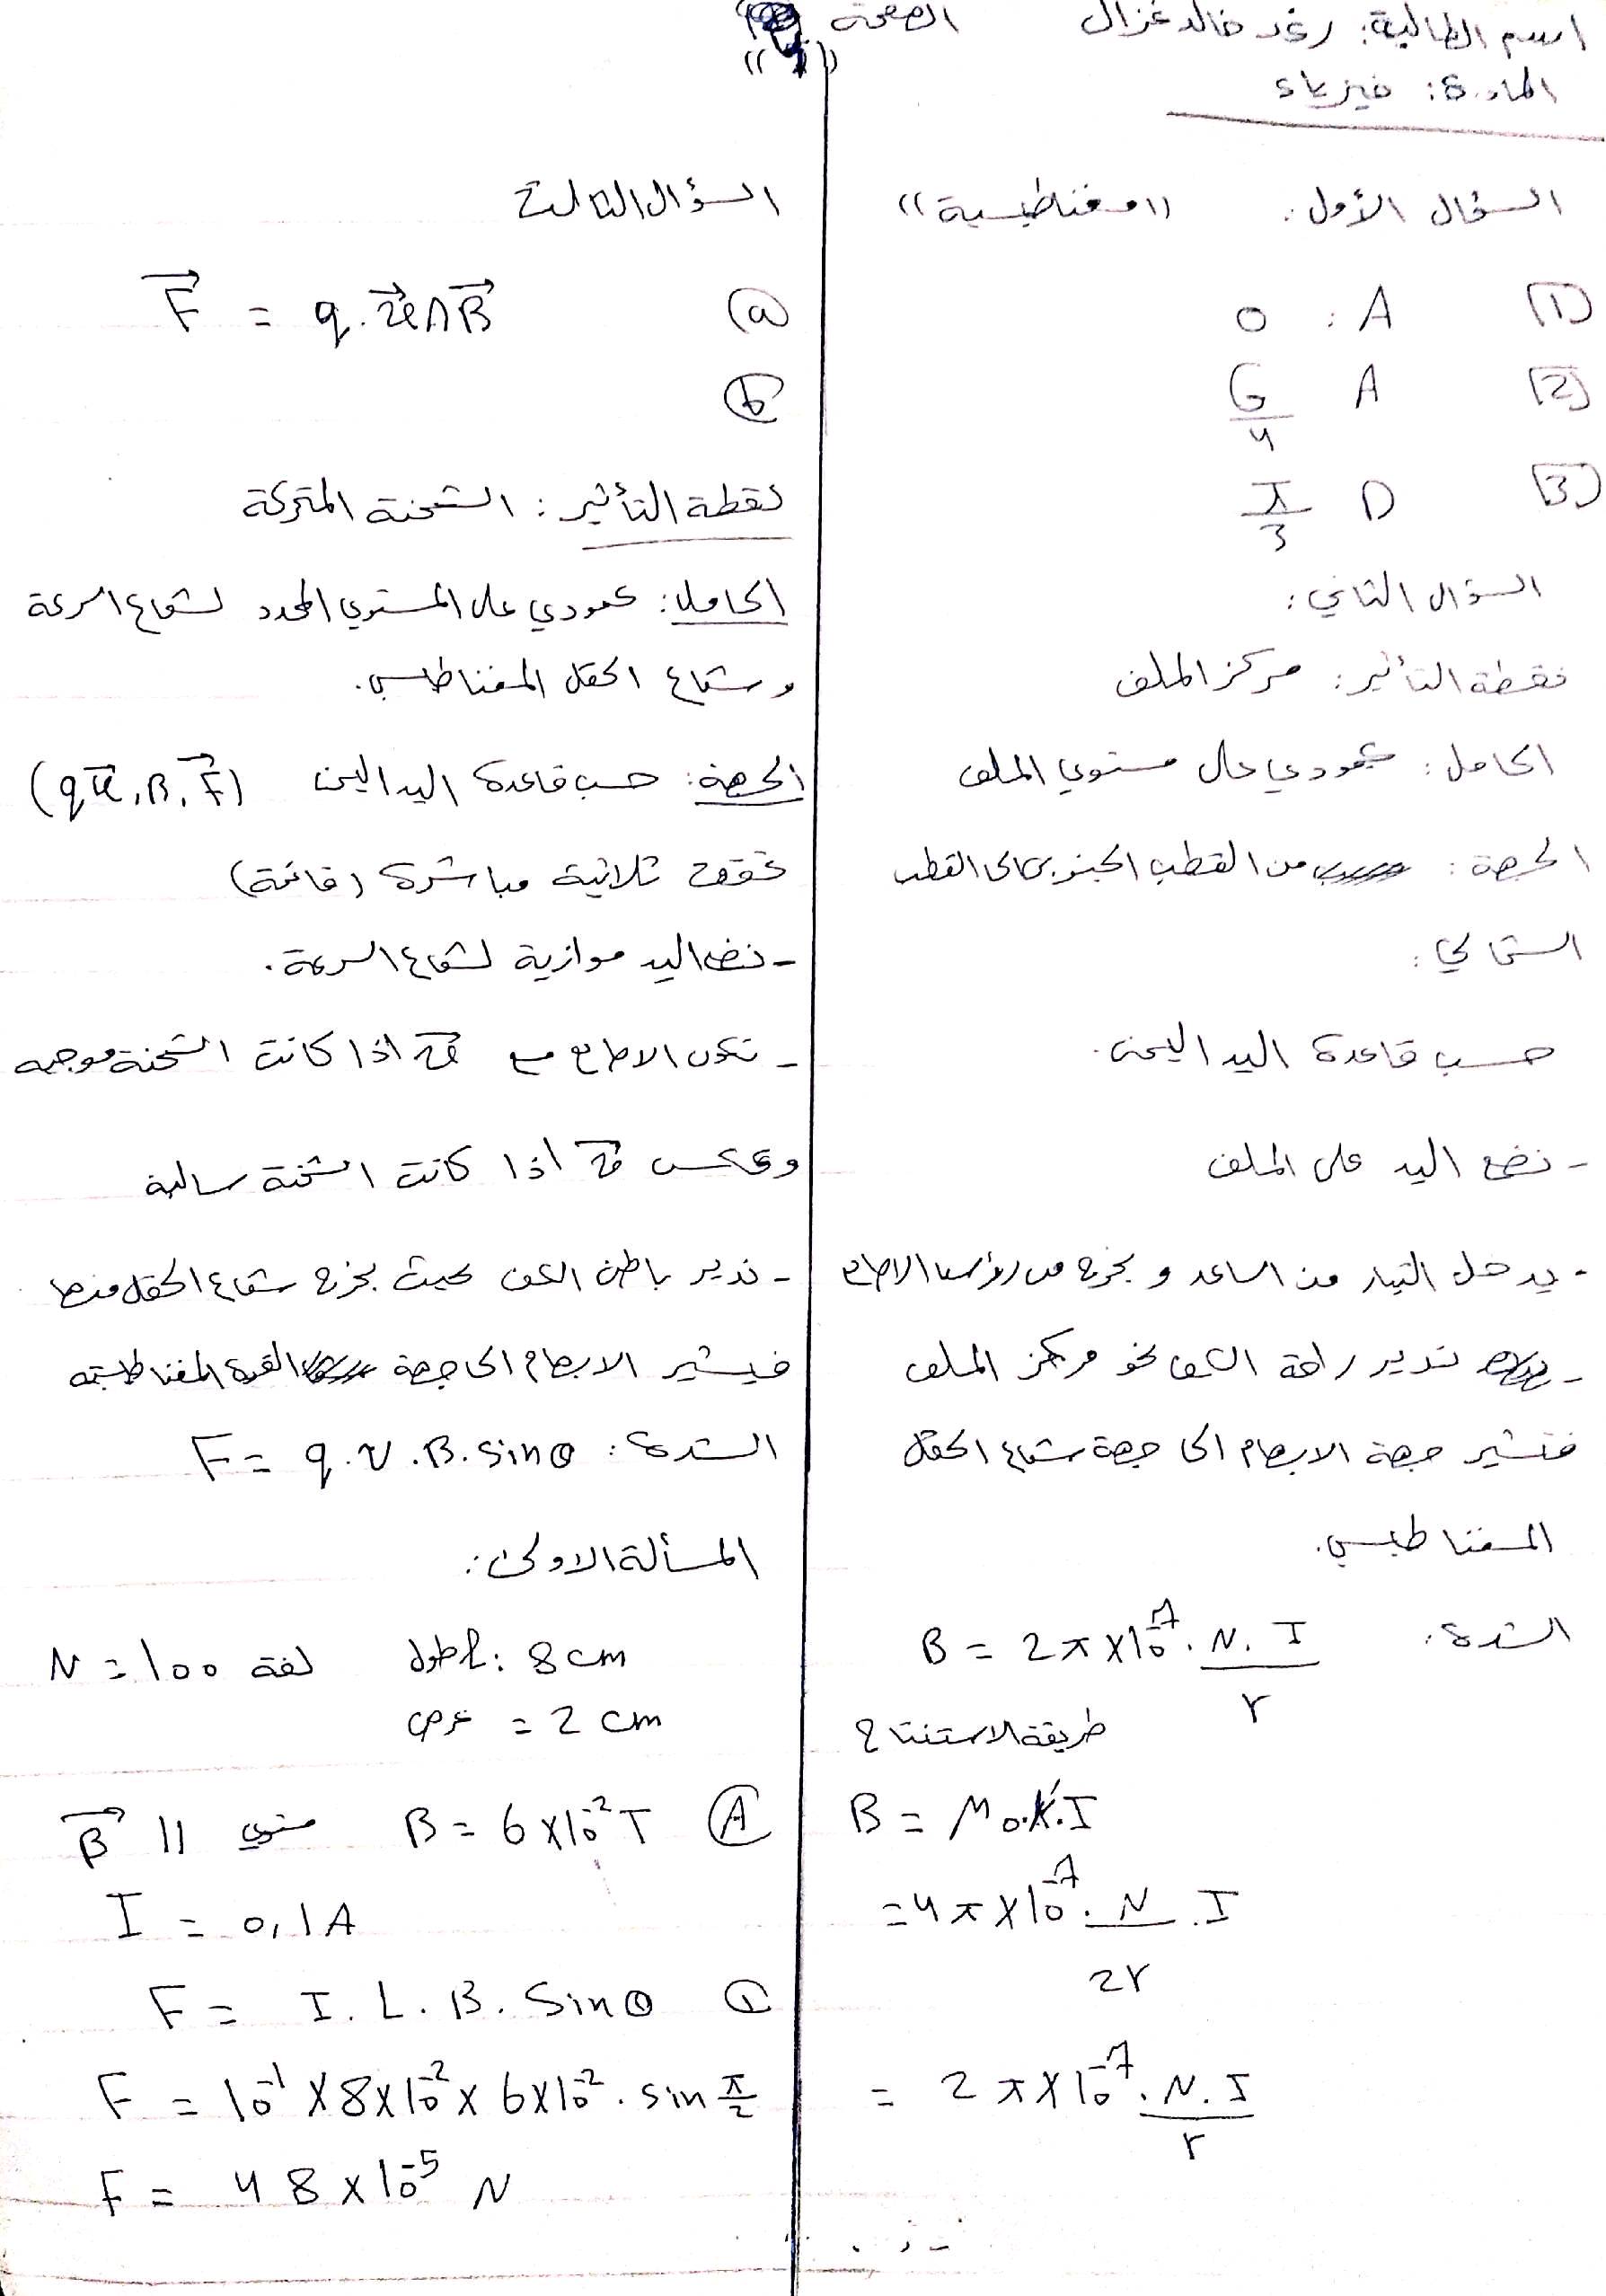 اسم الطالبة: رغد خالد غزال الصفحة
المادة: فيزياء
السؤال الأول: ((مغناطيسية))
(1) A : 0
(2) A G/4
(3) D π/3
السؤال الثاني:
نقطة التأثير: مركز الملف
الحامل: عمودي على مستوي الملف
الجهة: من القطب الجنوبي الى القطب
الشمالي:
حسب قاعدة اليد اليمنى.
- نضع اليد على الملف
- يدخل التيار من الساعد و يخرج من رؤوس الاصابع
- ندير راحة الكف نحو مركز الملف
فتشير جهة الابهام الى جهة شعاع الحقل
المغناطيسي.
الشدة: B = 2π×10⁻⁷. N.I/r
طريقة الاستنتاج
B = μ0.K.I
= 4π×10⁻⁷. N/2r .I
= 2π×10⁻⁷. N.I/r
السؤال الثالث
(a) F⃗ = q.v⃗ Λ B⃗
(b)
نقطة التأثير: الشحنة المتحركة
الحامل: عمودي على المستوي المحدد لشعاع السرعة
و شعاع الحقل المغناطيسي.
الجهة: حسب قاعدة اليد اليمنى (qv⃗, B, F⃗)
تحقق ثلاثية مباشرة (قائمة)
- نضع اليد موازية لشعاع السرعة.
- تكون الاصابع مع v⃗ اذا كانت الشحنة موجبه
وعكس v⃗ اذا كانت الشحنة سالبة
- ندير باطن الكف بحيث يخرج شعاع الحقل منها
فيشير الابهام الى جهة القوة المغناطيسية
الشدة: F = q.v.B.sinθ
المسألة الاولى:
طول: 8 cm لفة N = 100
عرض = 2 cm
(A) B = 6×10⁻² T مستوي // B⃗
I = 0,1A
(1) F = I.L.B.Sinθ
F = 10⁻¹ × 8×10⁻² × 6×10⁻² . sin π/2
F = 48×10⁻⁵ N